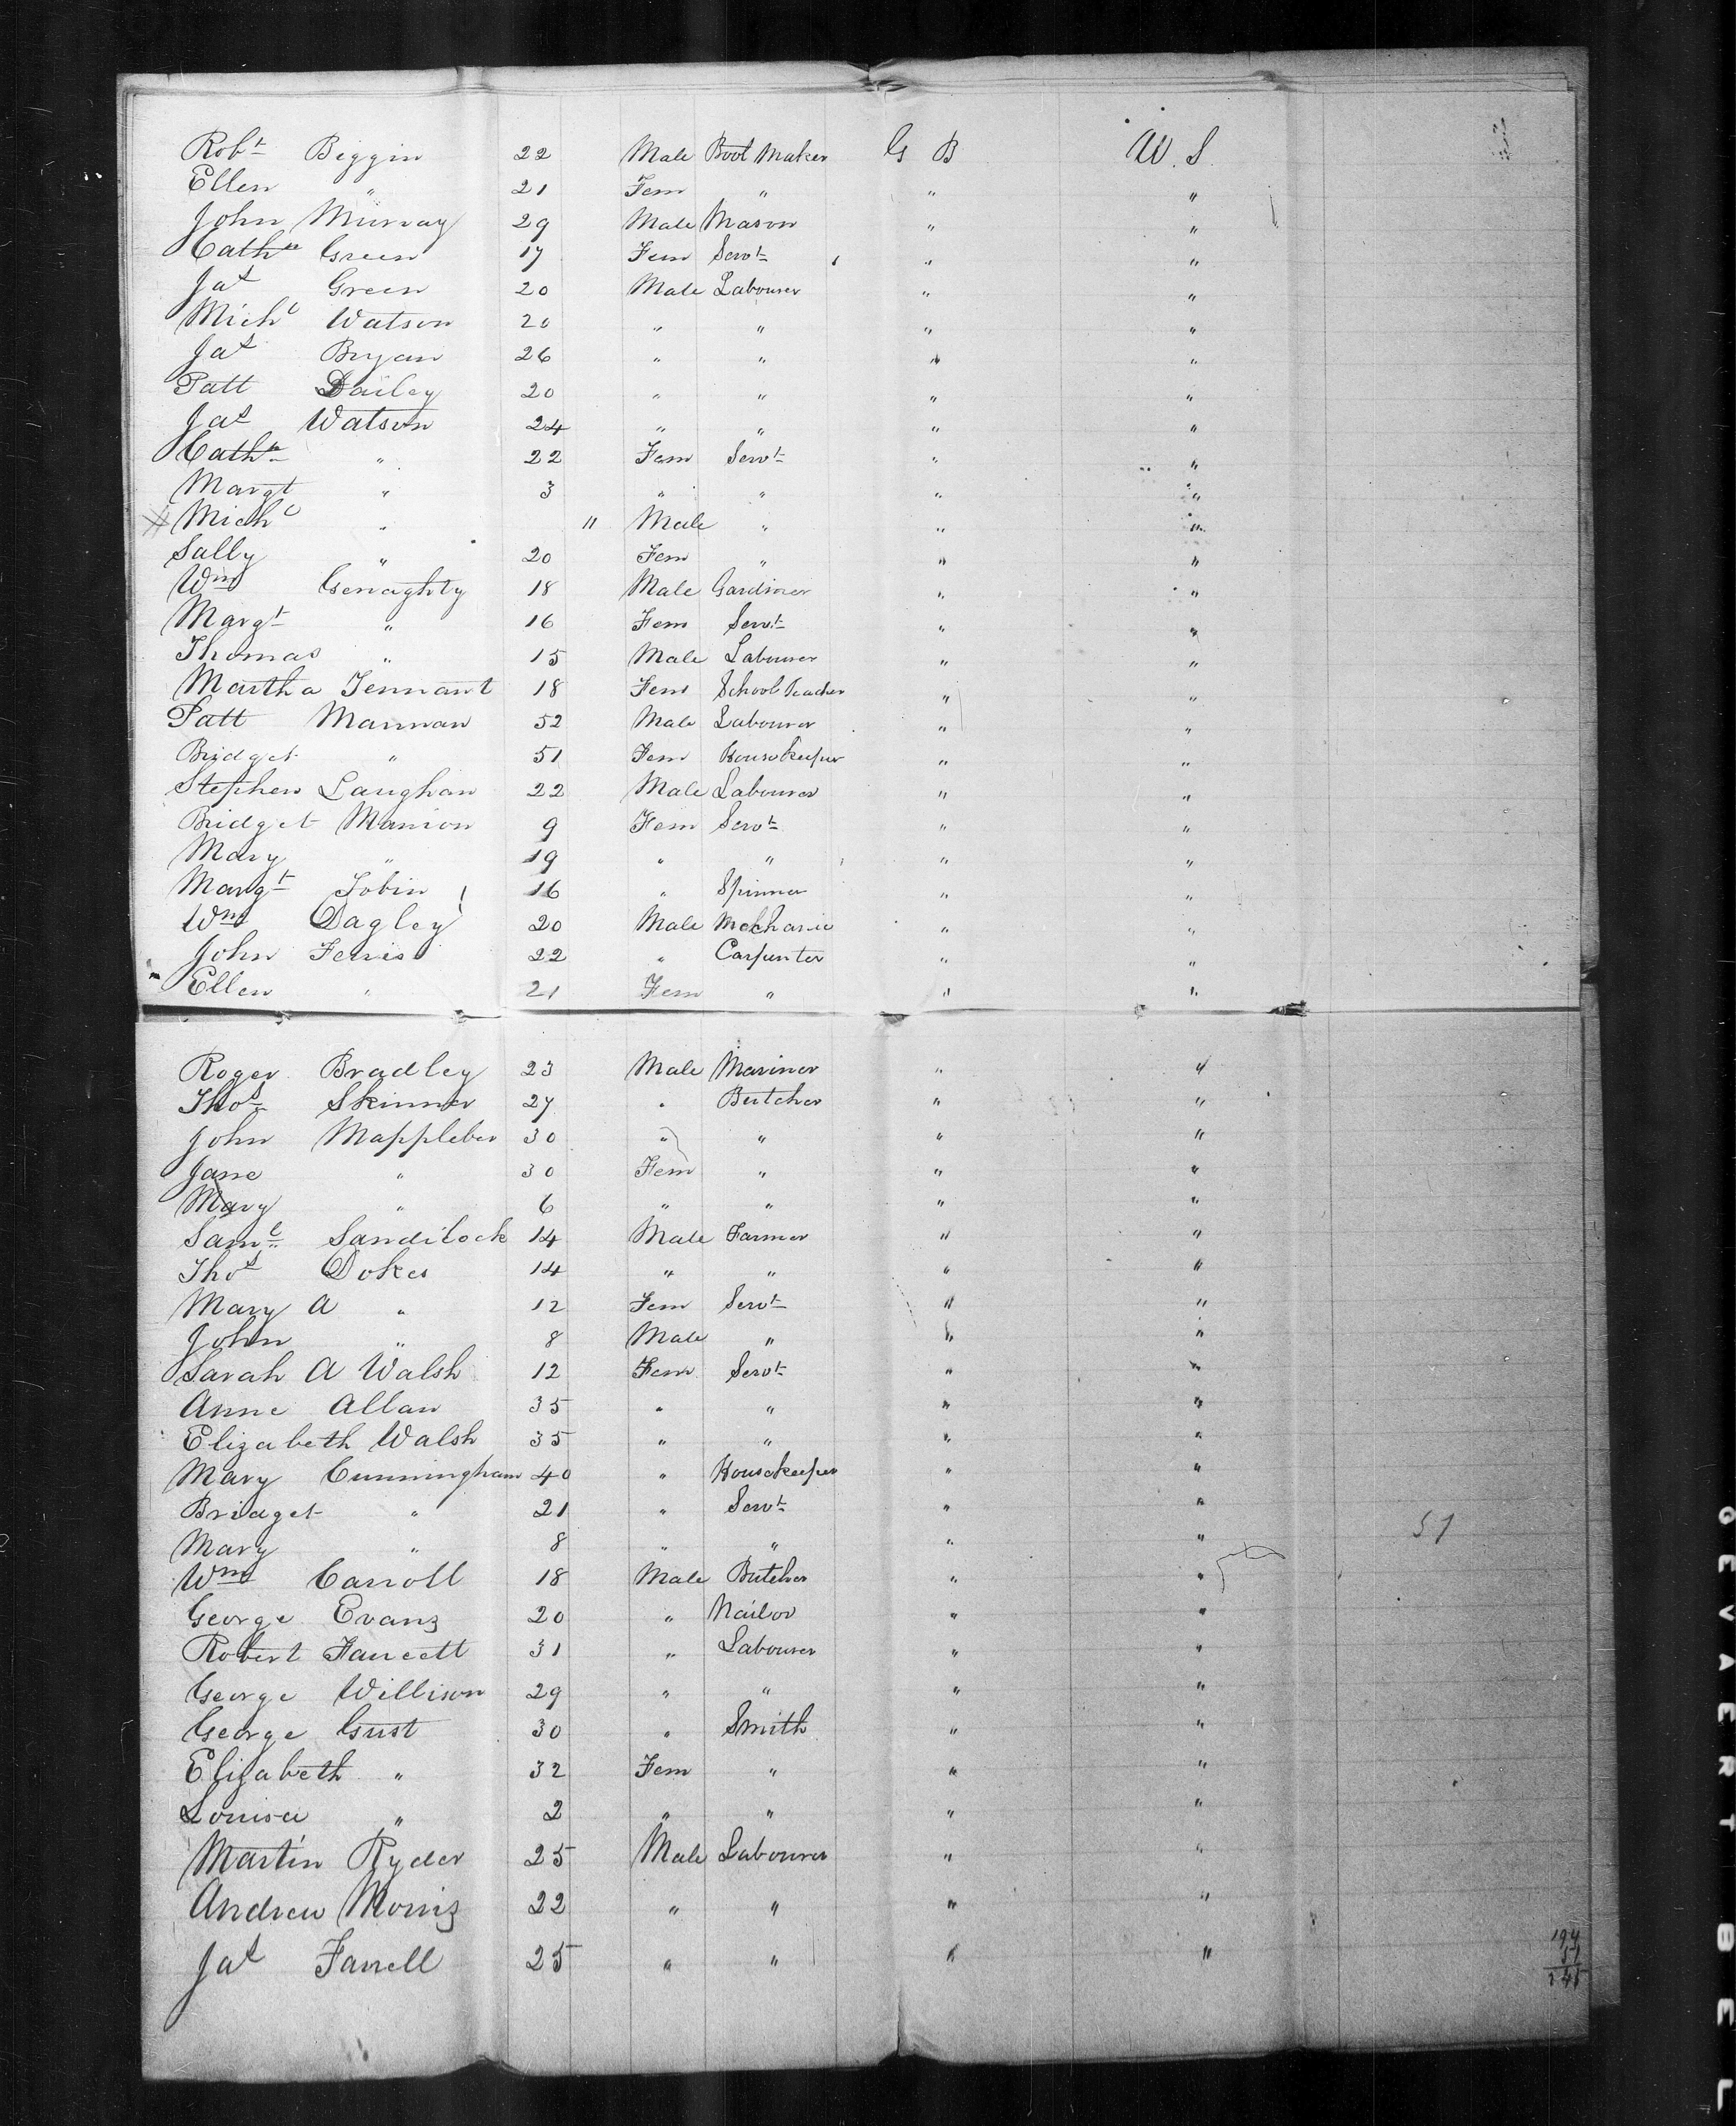 Robt Biggin 22 Male Boot Maker G B W. S.
Ellen " 21 Fem " " "
John Murray 29 Male Mason " "
Cathn Green 17 Fem Servt " "
Jas Green 20 Male Labourer " "
Michl Watson 20 " " " "
Jas Bryan 26 " " " "
Patt Dailey 20 " " " "
Jas Watson 24 " " " "
Cathn " 22 Fem Servt " "
Margt " 3 " " " "
Michl " " Male " " "
Sally " 20 Fem " " "
Wm Genaghty 18 Male Gardiner " "
Margt " 16 Fem Servt " "
Thomas " 15 Male Labourer " "
Martha Tennant 18 Fem School Teacher " "
Patt Mannan 52 Male Labourer " "
Bridget " 51 Fem Housekeeper " "
Stephen Laughan 22 Male Labourer " "
Bridget Manion 9 Fem Servt " "
Mary " 19 " " " "
Margt Tobin 16 " Spinner " "
Wm Dagley 20 Male Mechanic " "
John Ferris 22 " Carpenter " "
Ellen " 21 Fem " " "
Roger Bradley 23 Male Mariner " "
Thos Skinner 27 " Butcher " "
John Mappleber 30 " " " "
Jane " 30 Fem " " "
Mary " 6 " " " "
Saml Sandilock 14 Male Farmer " "
Thos Dokes 14 " " " "
Mary A " 12 Fem Servt " "
John " 8 Male " " "
Sarah A Walsh 12 Fem Servt " "
Anne Allan 35 " " " "
Elizabeth Walsh 35 " " " "
Mary Cunningham 40 " Housekeeper " "
Bridget " 21 " Servt " "
Mary " 8 " " " " 51
Wm Carroll 18 Male Butcher " "
George Evans 20 " Nailor " "
Robert Faucett 31 " Labourer " "
George Willison 29 " " " "
George Gust 30 " Smith " "
Elizabeth " 32 Fem " " "
Louisa " 2 " " " "
Martin Ryder 25 Male Labourer " "
Andrew Morris 22 " " " "
Jas Farrell 25 " " " "
194
51
245
GEVAERT BEL